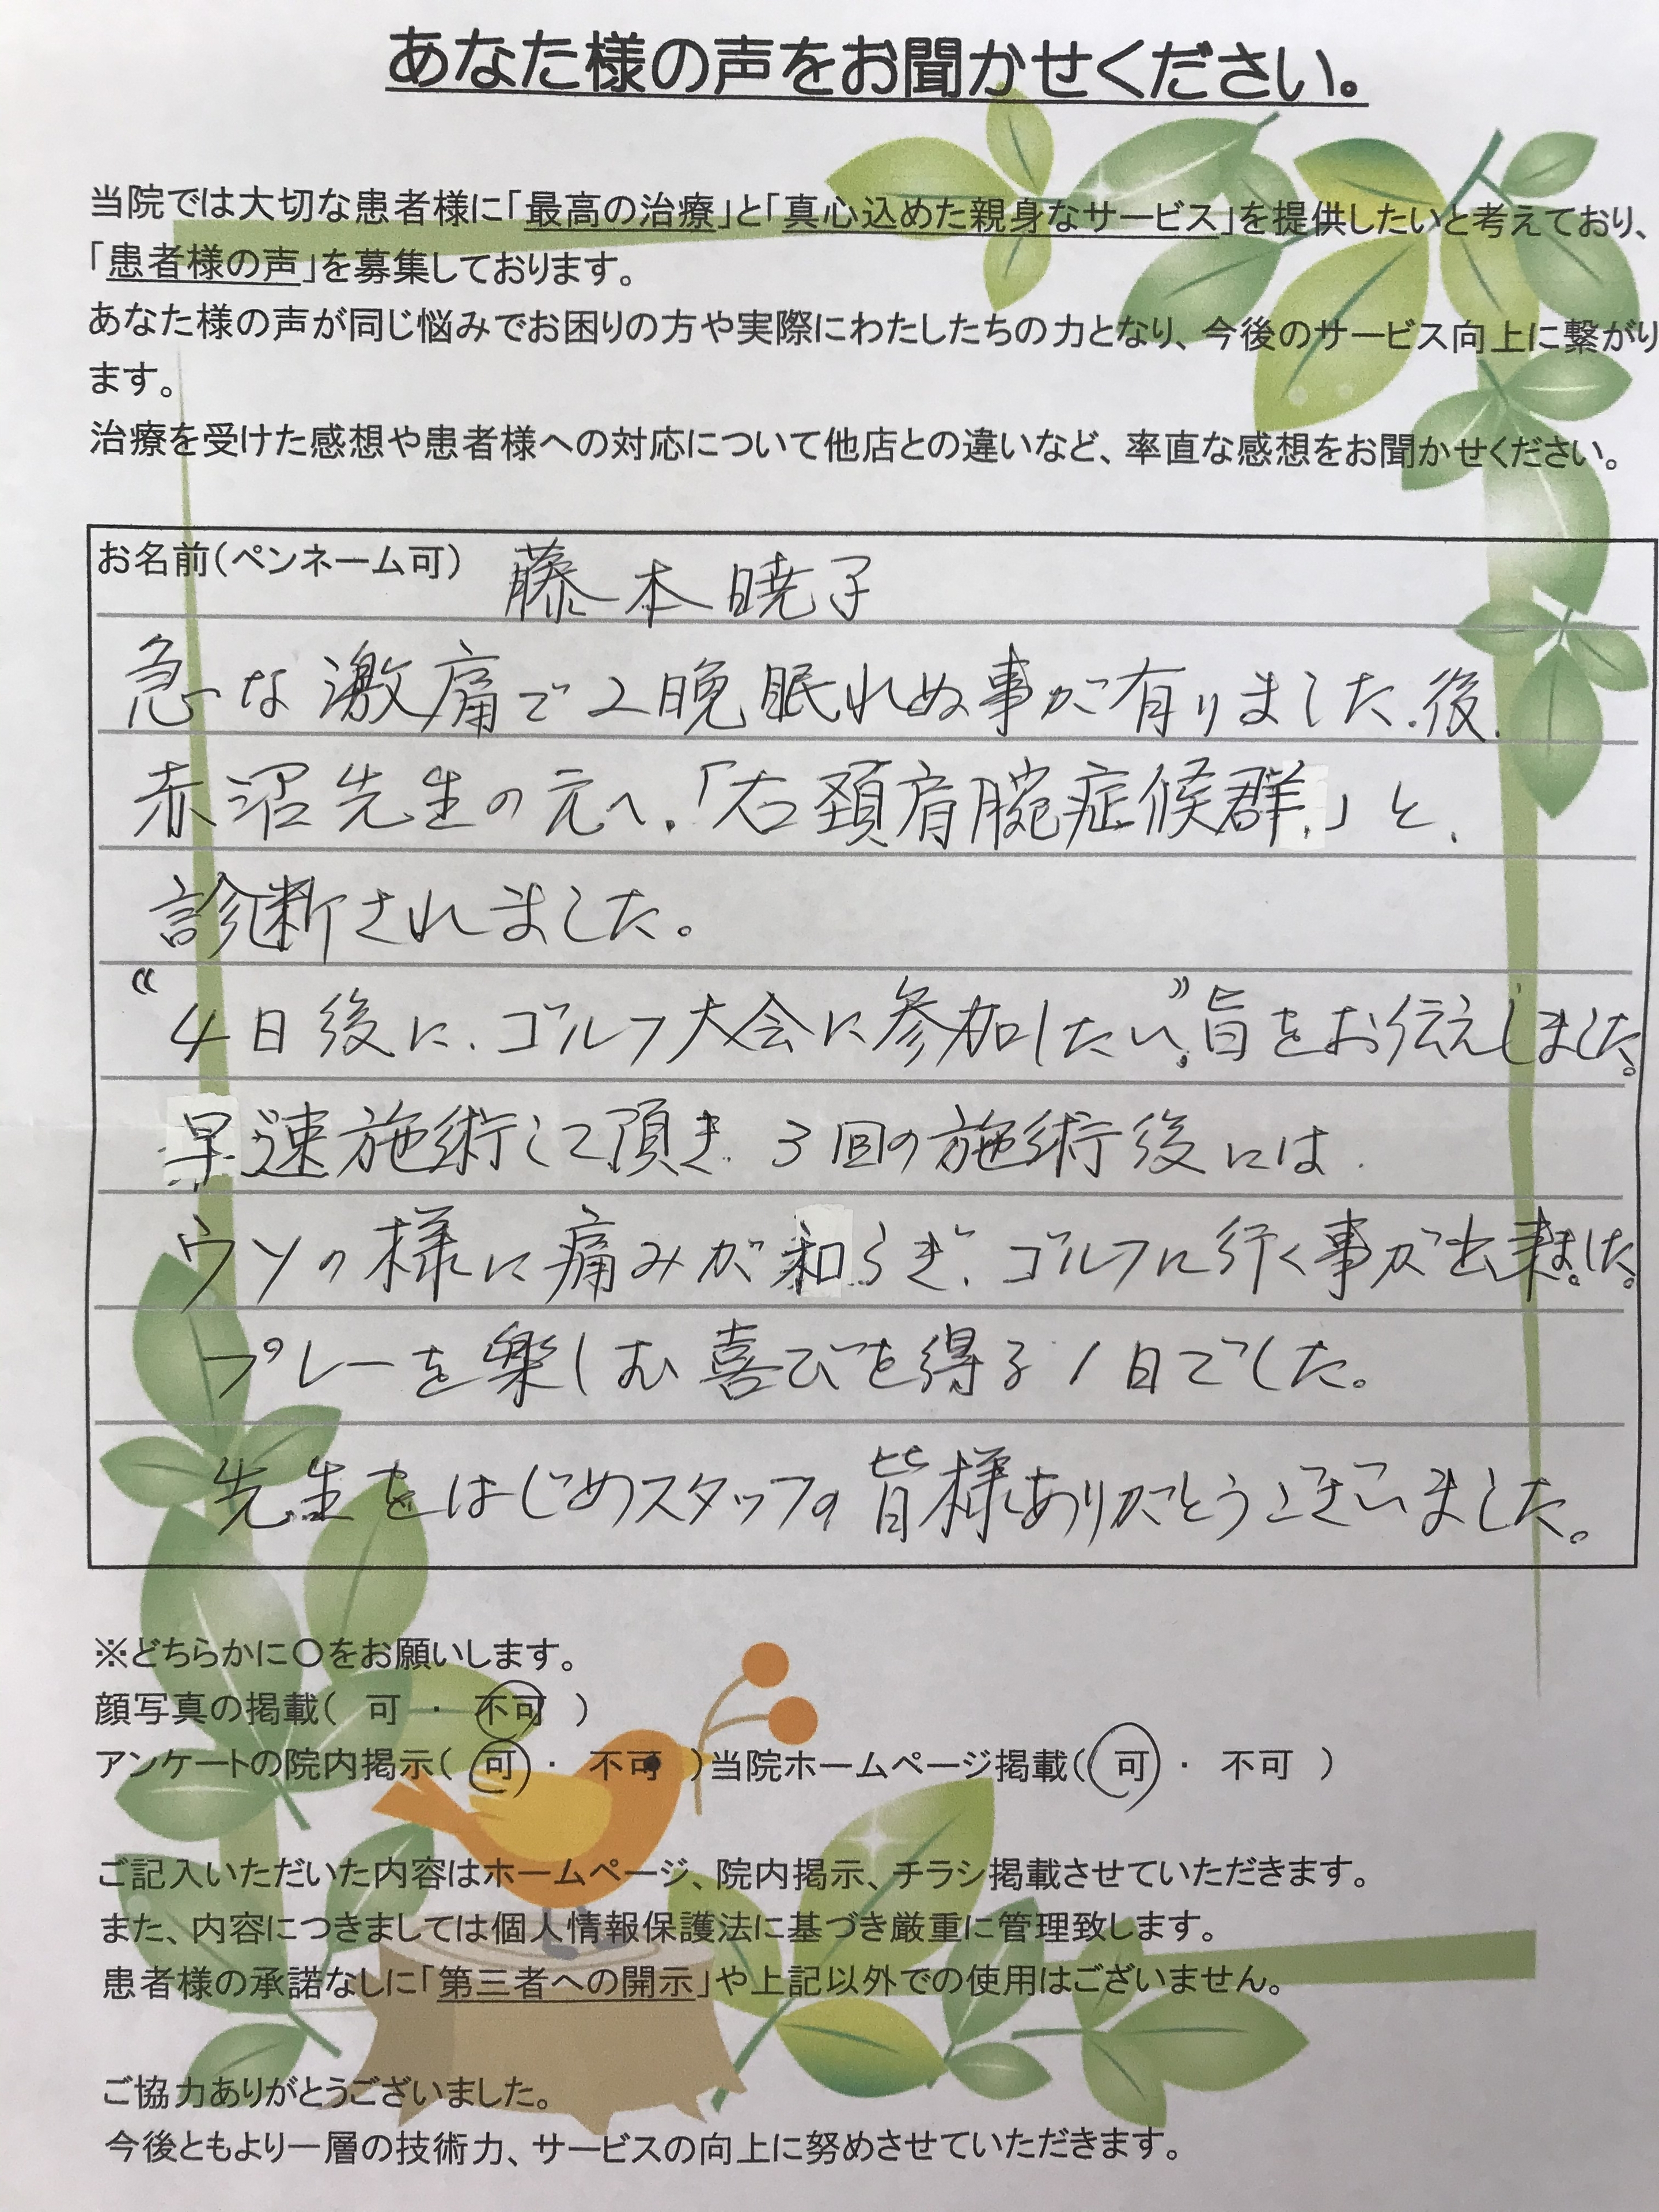 あなた様の声をお聞かせください。
当院では大切な患者様に「最高の治療」と「真心込めた親身なサービス」を提供したいと考えており、
「患者様の声」を募集しております。
あなた様の声が同じ悩みでお困りの方や実際にわたしたちの力となり、今後のサービス向上に繋がり
ます。
治療を受けた感想や患者様への対応について他店との違いなど、率直な感想をお聞かせください。
お名前(ペンネーム可) 藤本暁子
急な激痛で2晩眠れぬ事が有りました.後.
赤沼先生の元へ.「右頚肩腕症候群.」と.
診断されました。
“4日後に.ゴルフ大会に参加したい”旨をお伝えしました。
早速施術して頂き.3回の施術後には.
ウソの様に痛みが和らぎ.ゴルフに行く事が出来ました。
プレーを楽しむ喜びを得る1日でした。
先生をはじめスタッフの皆様ありがとうございました。
※どちらかに〇をお願いします。
顔写真の掲載( 可 ・ 不可 )
アンケートの院内掲示( 可 ・ 不可 )当院ホームページ掲載( 可 ・ 不可 )
ご記入いただいた内容はホームページ、院内掲示、チラシ掲載させていただきます。
また、内容につきましては個人情報保護法に基づき厳重に管理致します。
患者様の承諾なしに「第三者への開示」や上記以外での使用はございません。
ご協力ありがとうございました。
今後ともより一層の技術力、サービスの向上に努めさせていただきます。